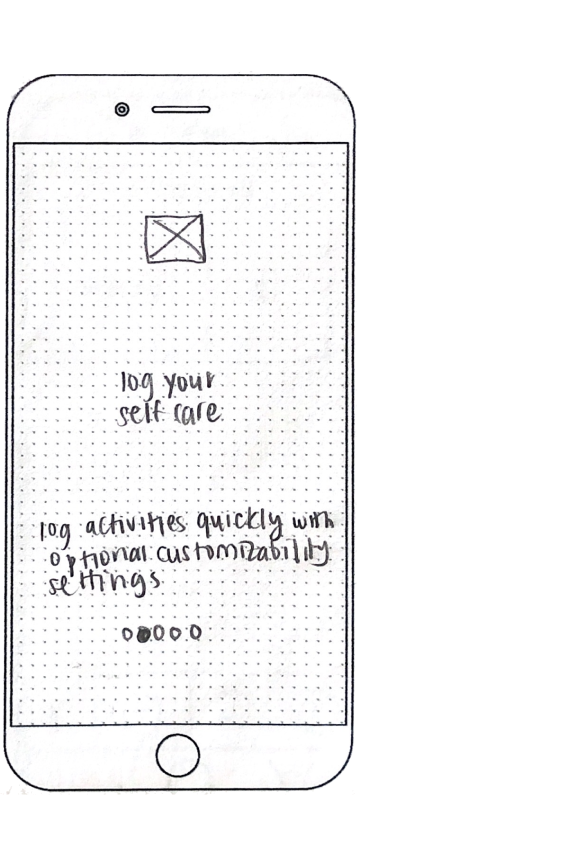 log your
self care
log activities quickly with
optional customizability
settings